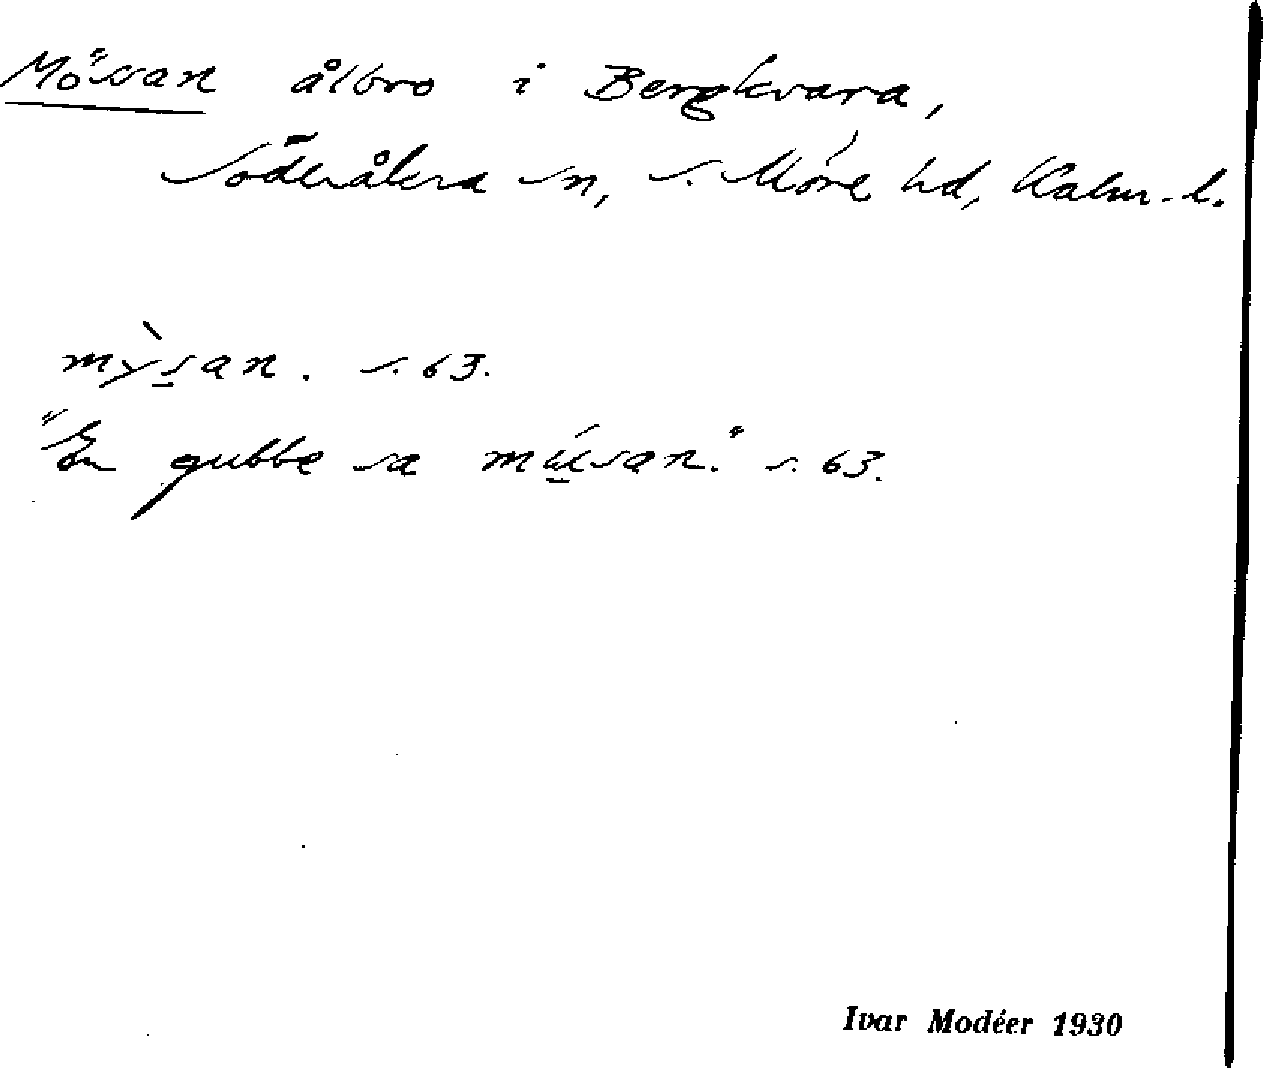 Mössan ålbro i Bergkvara,
Söderåkra sn, S. Möre hd, Kalm. l.
mỳs̲an. s. 63.
"En gubbe sa s. 63.
Ivar Modéer 1930